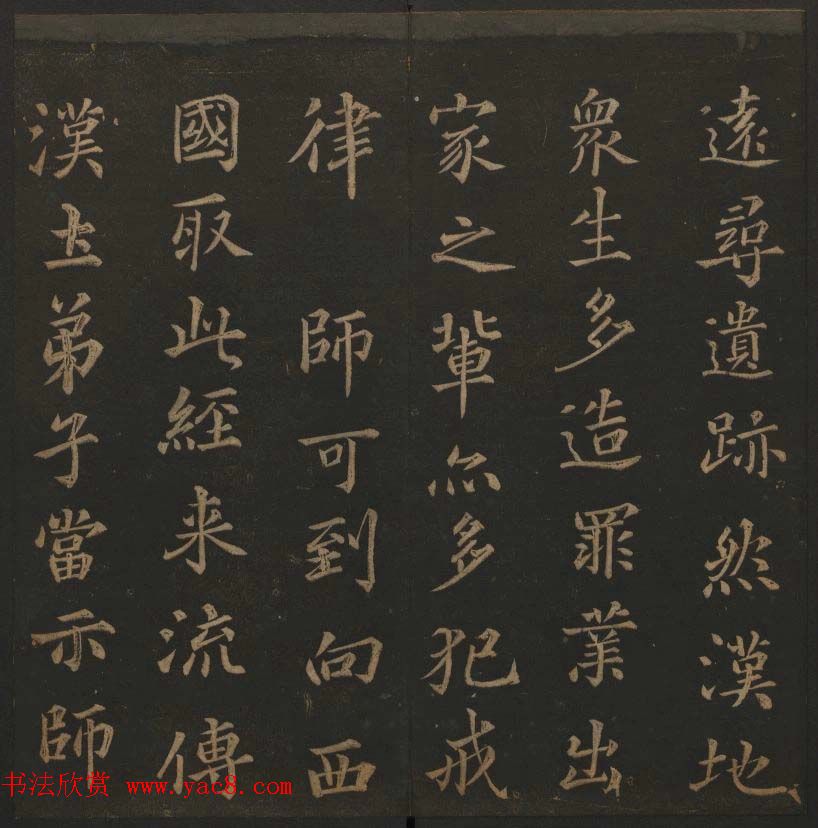 遠尋遺跡然漢地
衆生多造罪業出
家之輩亦多犯戒
律　師可到向西
國取此經来流傳
漢土弟子當示師
书法欣赏 www.yac8.com